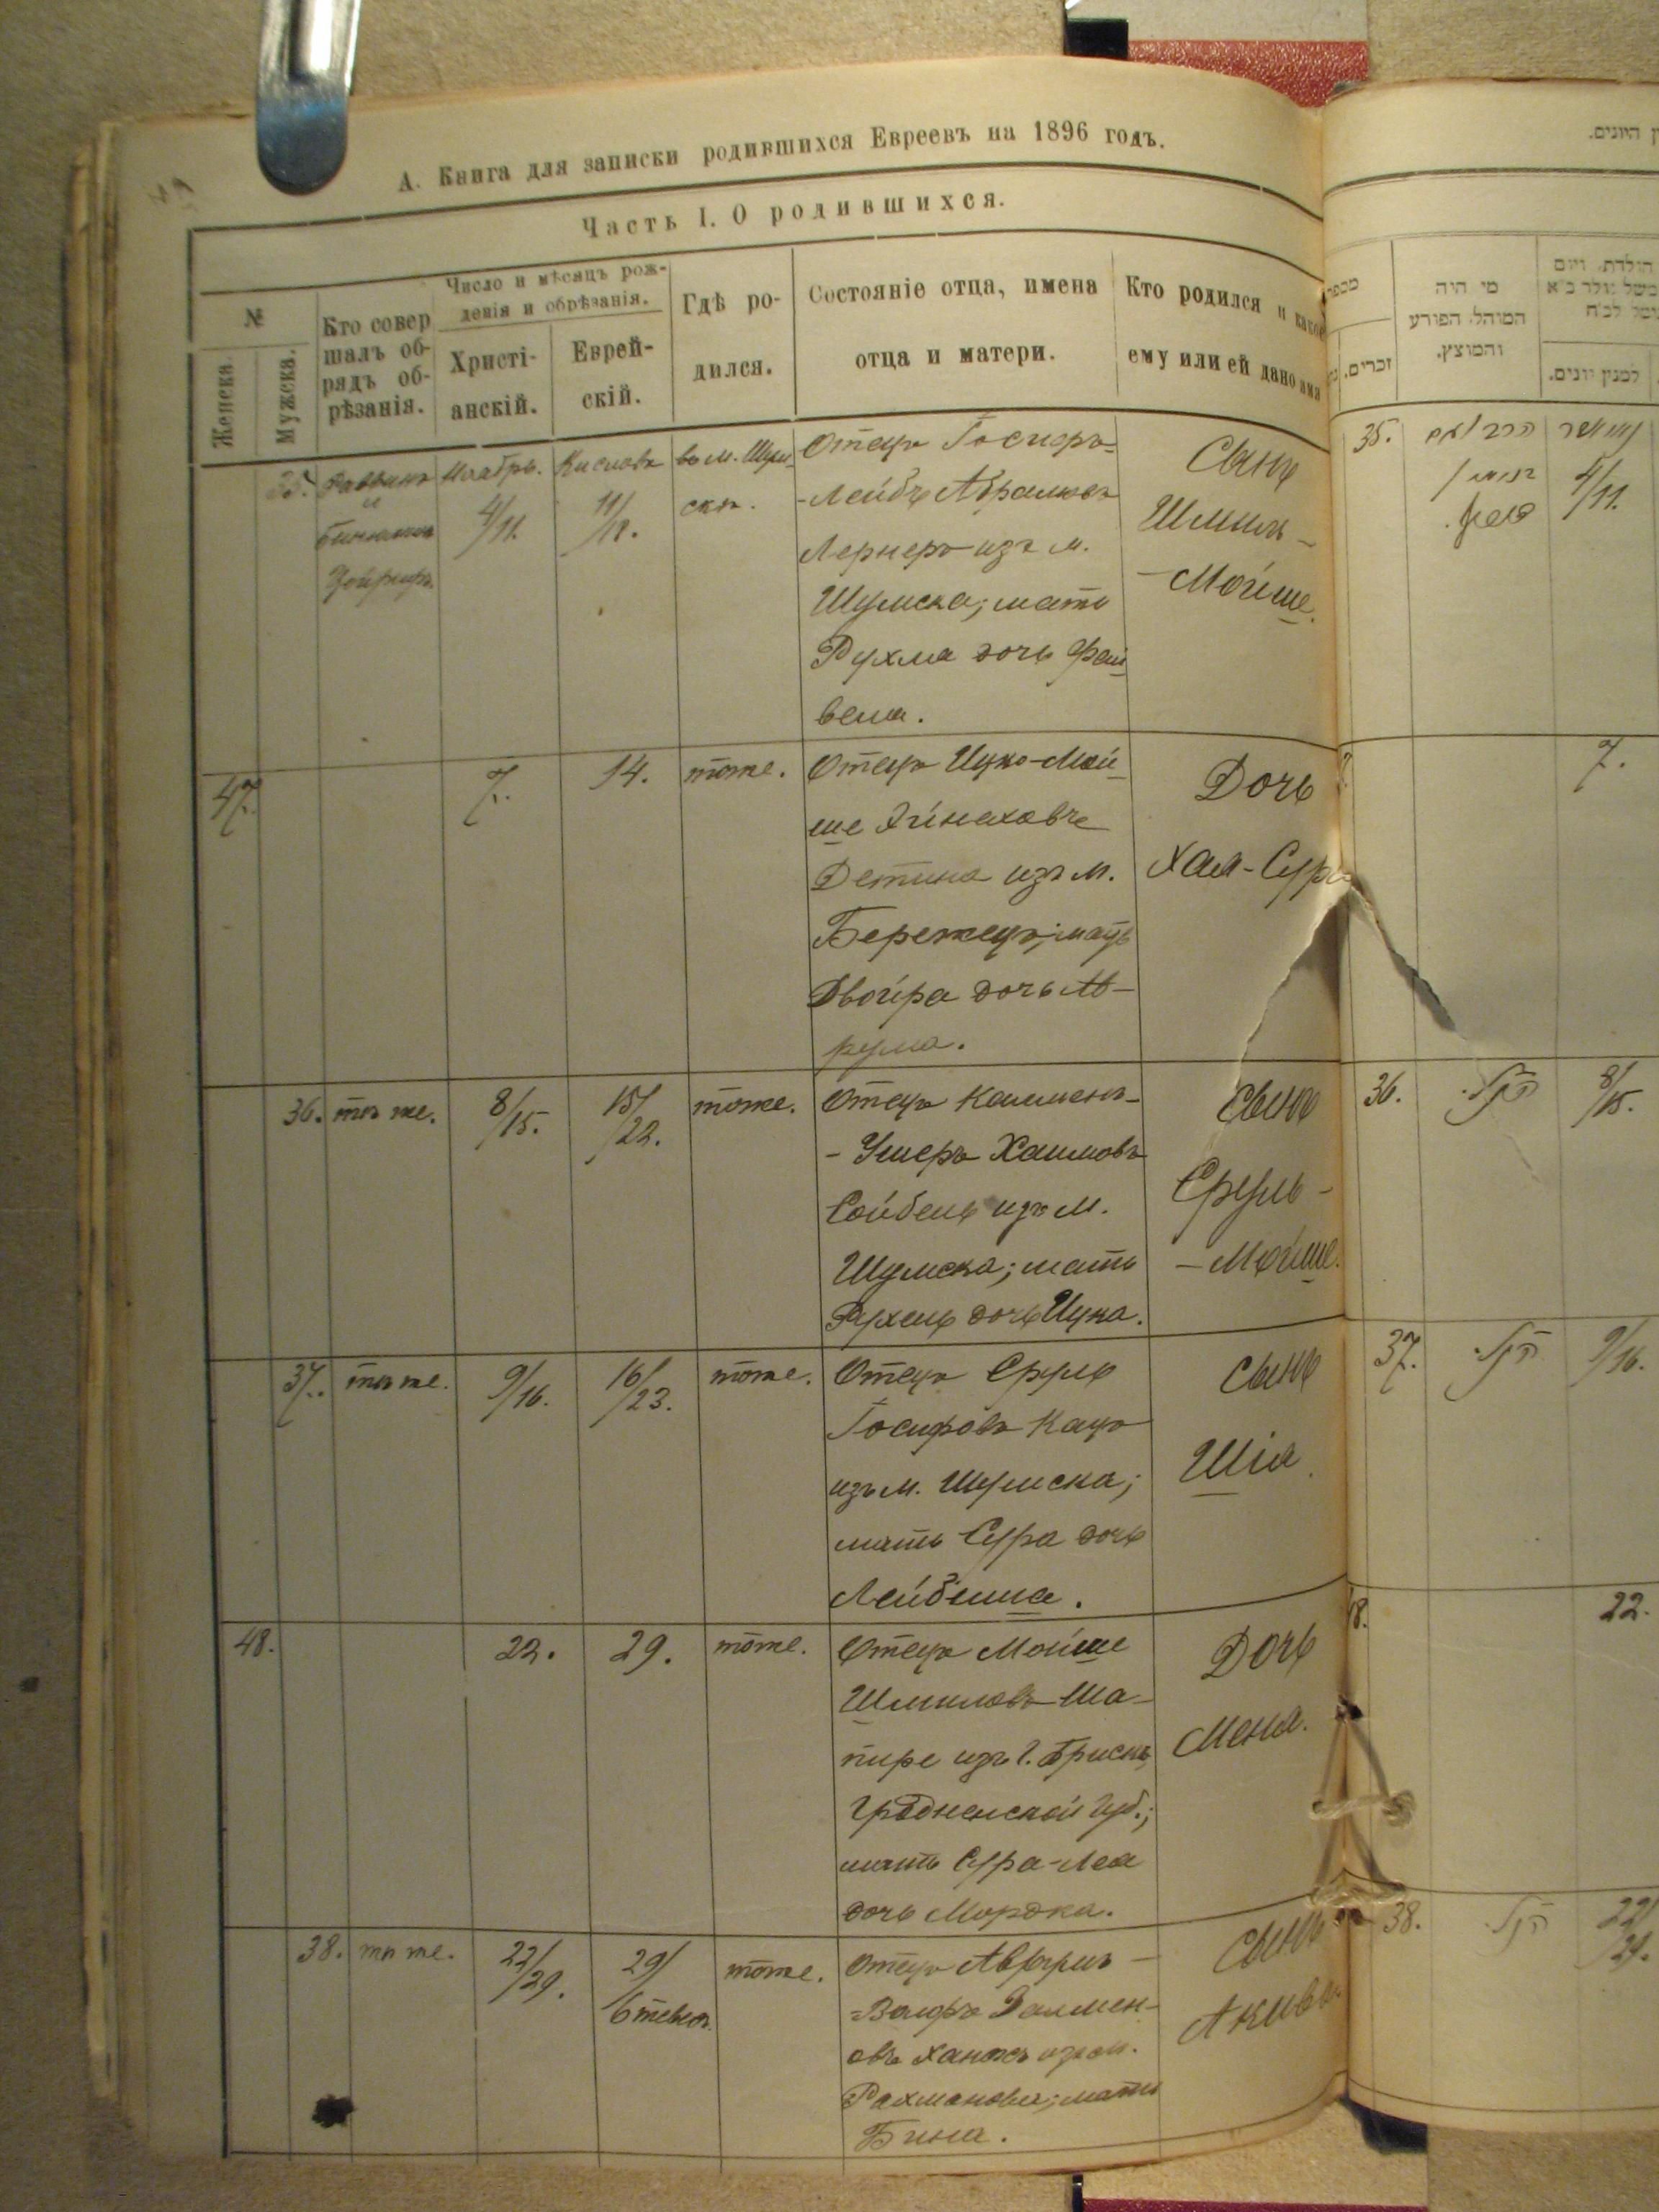 А. Книга для записки родившихся Евреевъ на 1896 годъ.
Часть I. О родившихся.
№
Женска.
Мужска.
Кто совер
шалъ об-
рядъ об-
рѣзанія.
Число и мѣсяцъ рож-
денія и обрѣзанія.
Христі-
анскій.
Еврей-
скій.
Гдѣ ро-
дился.
Состояніе отца, имена
отца и матери.
Кто родился и какое
ему или ей дано имя
35.
Раввинъ
и
Ноябрь.
4/11.
Кислова
11/18.
въ м. Шум-
скъ.
Отецъ Іосиръ-
-Лейбъ Абрамовъ
Лернеръ изъ м.
Шумска; мать
Рухма дочь Фай-
веля.
Сынъ
Шмиль-
-Мойше.
47.
7.
14.
тоже.
Отецъ Ицко-Мой-
ше Эйнаховъ
Детина изъ м.
Бережецъ; мать
Двойра дочь Ав-
рума.
Дочь
Хая-Сура
36.
тоже.
8/15.
15/22.
тоже.
Отецъ Калменъ-
-Ушеръ Хаимовъ
Сойбель изъ м.
Шумска; мать
Рухель дочь Ицка.
Сынъ
Сруль-
-Мойше.
37.
тоже.
9/16.
16/23.
тоже.
Отецъ Сруль
Іосифовъ Кацъ
изъ м. Шумска;
мать Сура дочь
Лейбиша.
Сынъ
Шія
48.
22.
29.
тоже.
Отецъ Мойше
Шмиловъ Ша-
пире изъ г. Брискъ,
Гродненской губ.;
мать Сура-Леа
дочь Мордка.
Дочь
Меня.
38.
тоже.
22/29.
29/
6 тевеса.
тоже.
Отецъ Аврумъ-
=Волфъ Залмен-
овъ изъ м.
Рахманова; мать
Бина.
Сынъ
Акива
היונים.
זכרים.
מי היה
המוהל, הפורע
והמוצץ.
הולדת, ויום
למנין יונים.
35.
4/11.
7.
36.
8/15.
37.
9/16.
48.
22.
38.
22/29.